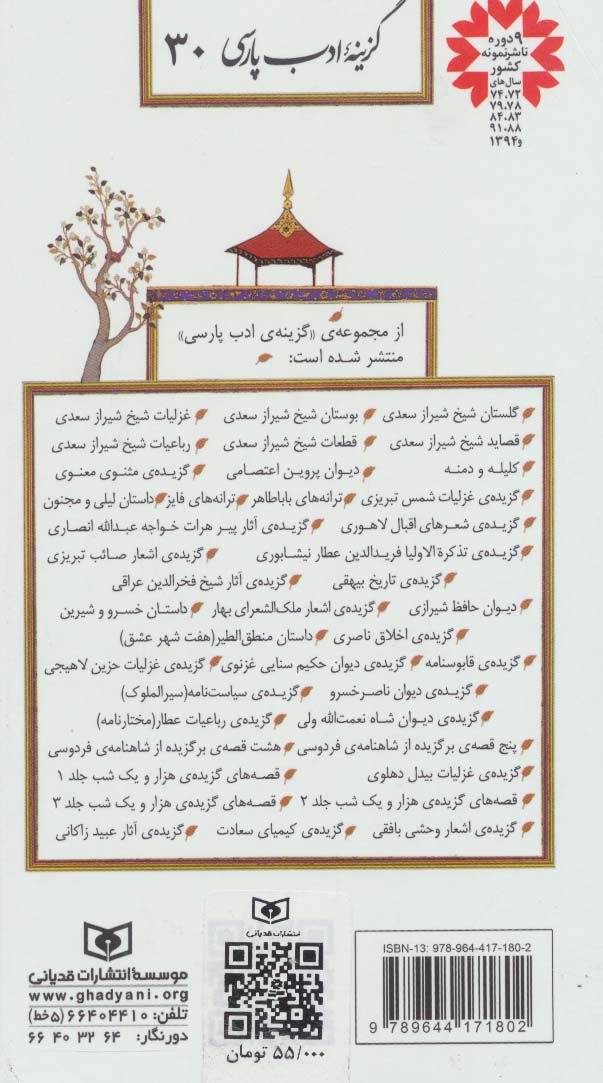 گزینهٔ ادب پارسی ۳۰
۹ دوره
ناشر نمونه
کشور
سال‌های
۷۴،۷۲
۷۹،۷۸
۸۴،۸۳
۹۱،۸۸
و ۱۳۹۴
از مجموعه‌ی «گزینه‌ی ادب پارسی»
منتشر شده است:
گلستان شیخ شیراز سعدی بوستان شیخ شیراز سعدی غزلیات شیخ شیراز سعدی
قصاید شیخ شیراز سعدی قطعات شیخ شیراز سعدی رباعیات شیخ شیراز سعدی
کلیله و دمنه دیوان پروین اعتصامی گزیده‌ی مثنوی معنوی
گزیده‌ی غزلیات شمس تبریزی ترانه‌های باباطاهر ترانه‌های فایز داستان لیلی و مجنون
گزیده‌ی شعرهای اقبال لاهوری گزیده‌ی آثار پیر هرات خواجه عبدالله انصاری
گزیده‌ی تذکرة الاولیا فریدالدین عطار نیشابوری گزیده‌ی اشعار صائب تبریزی
گزیده‌ی تاریخ بیهقی گزیده‌ی آثار شیخ فخرالدین عراقی
دیوان حافظ شیرازی گزیده‌ی اشعار ملک‌الشعرای بهار داستان خسرو و شیرین
گزیده‌ی اخلاق ناصری داستان منطق‌الطیر(هفت شهر عشق)
گزیده‌ی قابوسنامه گزیده‌ی دیوان حکیم سنایی غزنوی گزیده‌ی غزلیات حزین لاهیجی
گزیده‌ی دیوان ناصرخسرو گزیده‌ی سیاست‌نامه(سیرالملوک)
گزیده‌ی دیوان شاه نعمت‌الله ولی گزیده‌ی رباعیات عطار(مختارنامه)
پنج قصه‌ی برگزیده از شاهنامه‌ی فردوسی هشت قصه‌ی برگزیده از شاهنامه‌ی فردوسی
گزیده‌ی غزلیات بیدل دهلوی قصه‌های گزیده‌ی هزار و یک شب جلد ۱
قصه‌های گزیده‌ی هزار و یک شب جلد ۲ قصه‌های گزیده‌ی هزار و یک شب جلد ۳
گزیده‌ی اشعار وحشی بافقی گزیده‌ی کیمیای سعادت گزیده‌ی آثار عبید زاکانی
ISBN-13: 978-964-417-180-2
9 789644 171802
انتشارات قدیانی
۵۵/۰۰۰ تومان
موسسهٔ انتشارات قدیانی
www.ghadyani.org
تلفن: ۶۶۴۰۴۴۱۰ (۵خط)
دورنگار: ۶۶ ۴۰ ۳۲ ۶۴